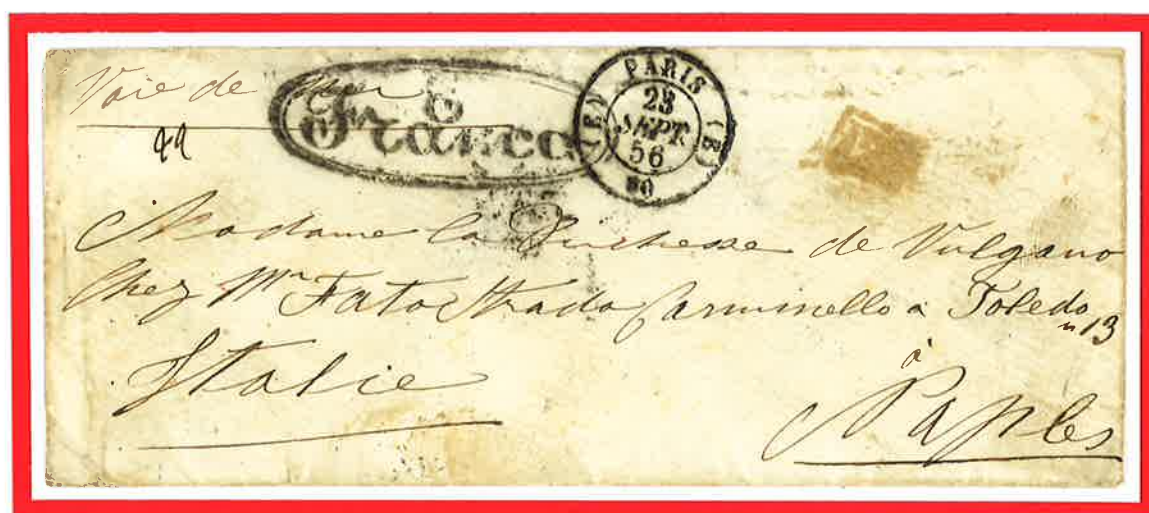 Voie de Mer
Franco
PARIS
(B)
23
SEPT.
56
Madame la Duchesse de Vulgano
Chez Mr Fato Strada Carminello a Toledo
n 13
Italie
à
Naples